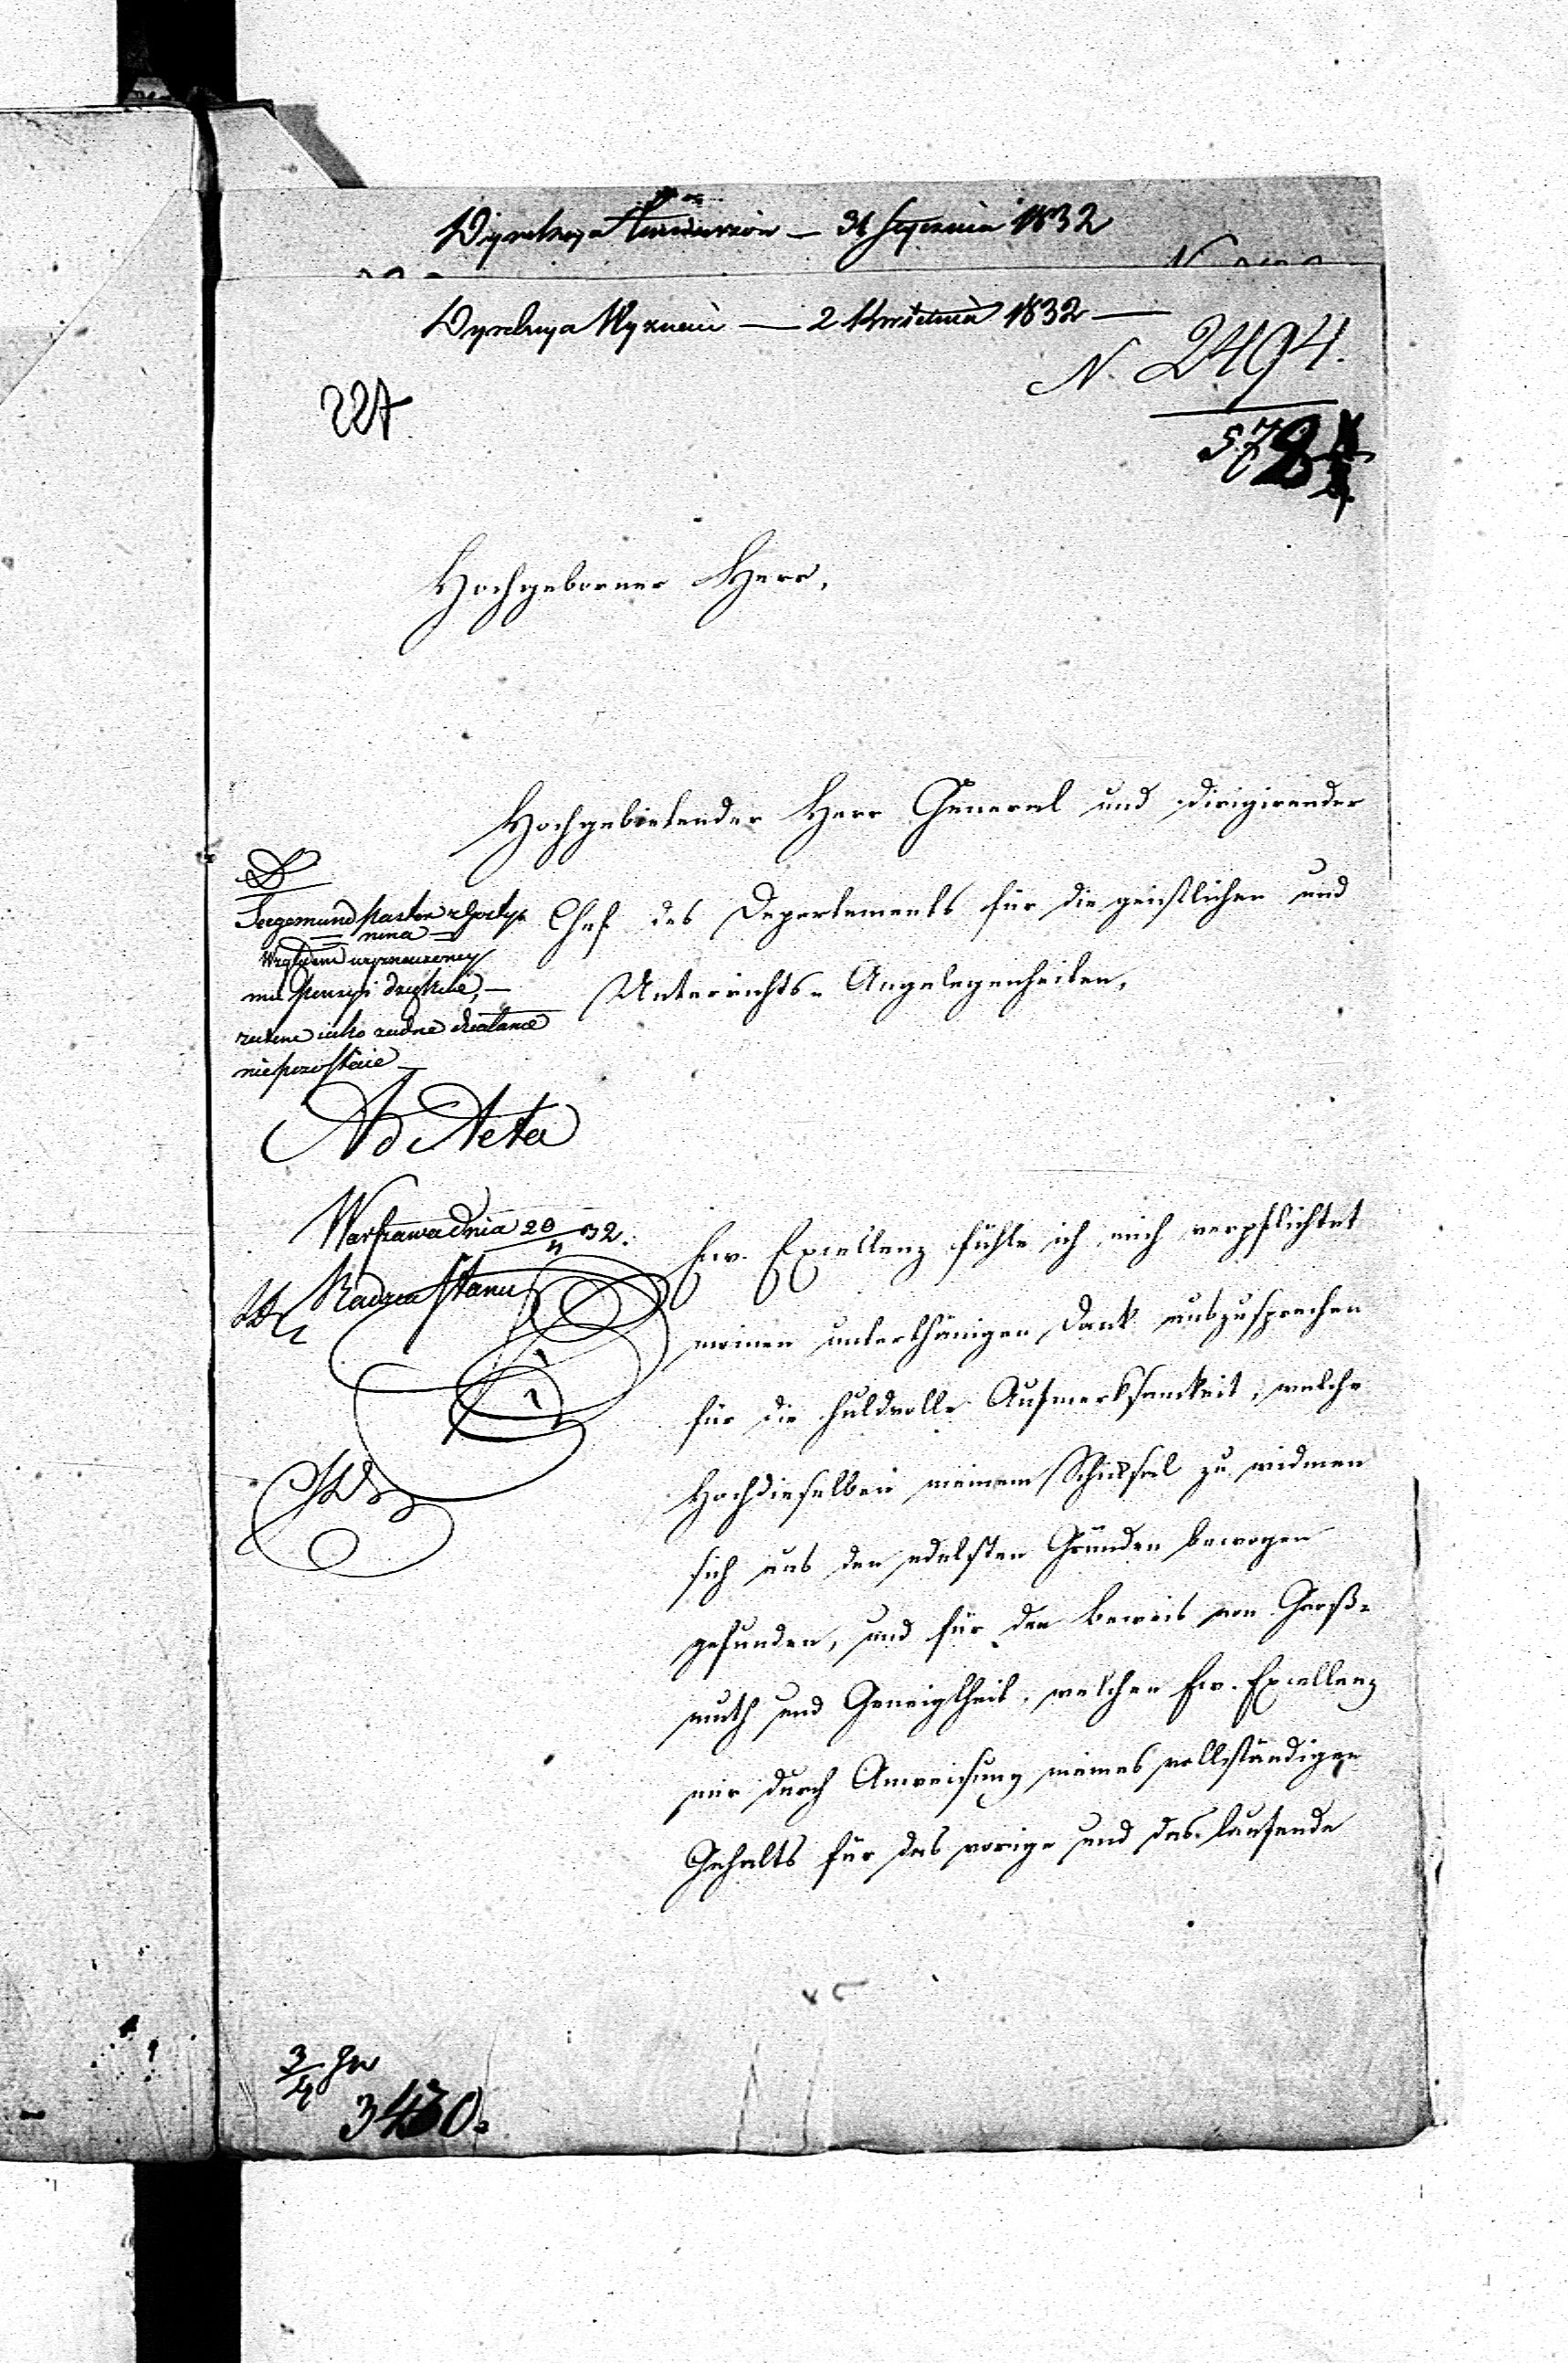 31 Stycznia 1832
Dyrekcya Wyznań — 2 Kwietnia 1832 —
N. 2494.
227
578
Hochgeborner Herr,
Hochgebietender Herr General und dirigirender
Chef des Departements für die geistlichen und
Unterrichts-Angelegenheiten,
pastor z Gostyn
nina
Względem wyznaczoney
mu pensyi dziękuie, —
żadne
niepozostaie —
Ad Acta
Warszawa dnia 20/4 32.
Radzca Stanu
Ew. Excellenz fühle ich mich verpflichtet
meinen unterthänigen Dank auszusprechen
für die huldvolle Aufmerksamkeit, welche
Hochdieselben meinem Schiksal zu widmen
sich aus den edelsten Gründen bewogen
gefunden, und für den Beweis von Groß-
muth und Geneigtheit, welchen Ew. Excellenz
mir durch Anweisung meines vollständigen
Gehalts für das vorige und das laufende
3/4
3430.